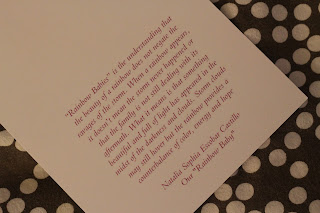 "Rainbow Babies" is the understanding that
the beauty of a rainbow does not negate the
ravages of the storm. When a rainbow appears,
it doesn't mean the storm never happened or
that the family is not still dealing with its
aftermath. What it means is that something
beautiful and full of light has appeared in the
midst of the darkness and clouds. Storm clouds
may still hover but the rainbow provides a
counterbalance of color, energy and hope
Natalia Sophia Escobar Castillo
Our "Rainbow Baby"